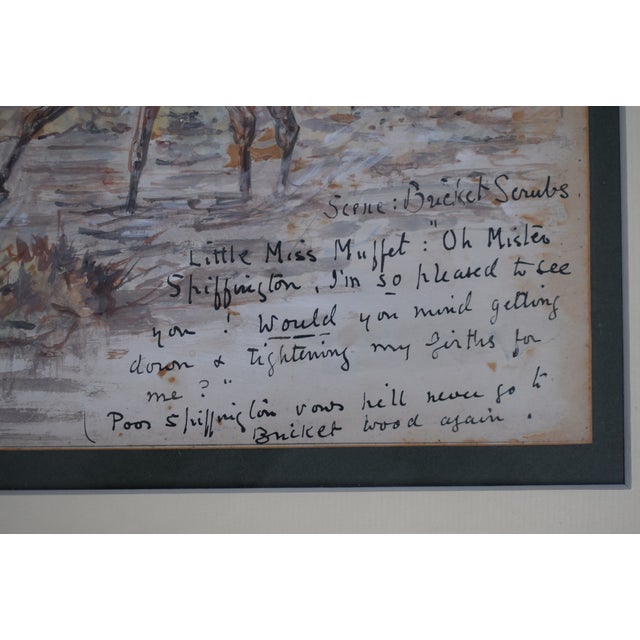 Scene: Bricket Scrubs.
Little Miss Muffet: "Oh Mister
Spiffington, I'm so pleased to see
you! Would you mind getting
down & tightening my girths for
me?"
(Poor Spiffington vows he'll never go to
Bricket wood again.